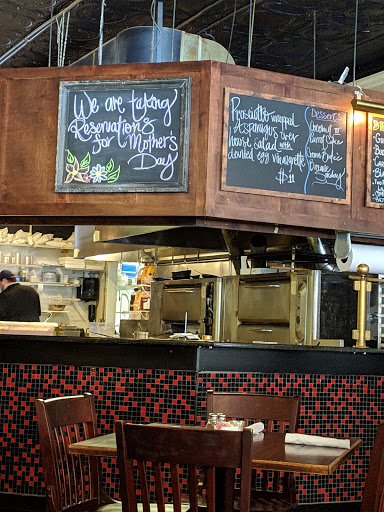 We are taking
Reservations
for Mother's
Day
Prosciutto wrapped
Asparagus over
house salad with
deviled egg vinaigrette
$11
Desserts
Carrot Cake